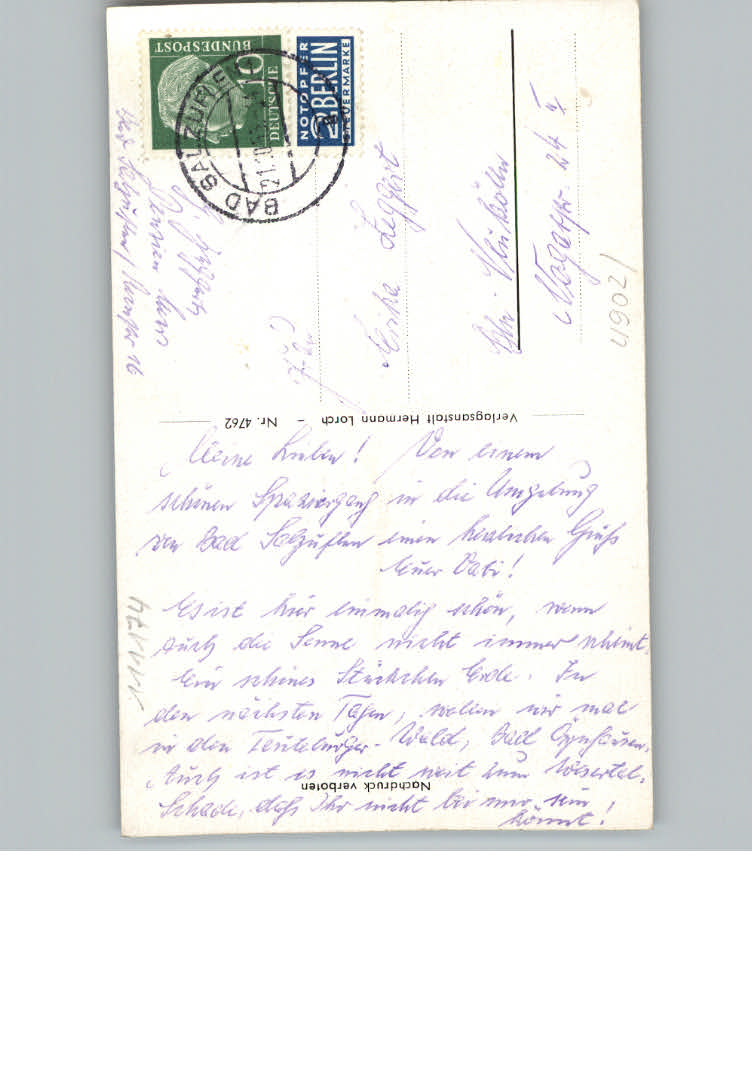 Meine Lieben! Von einem
schönen Spaziergang in die Umgebung
von Bad Salzuflen einen herzlichen Gruß
Euer Vati!
Es ist hier einmalig schön, wenn
auch die Sonne nicht immer scheint.
Ein schönes Stückchen Erde. In
den nächsten Tagen, wollen wir mal
in den Teuteburger-Wald, Bad Oynhausen.
Auch ist es nicht weit zum Wesertal.
Schade, daß Ihr nicht bei mir sein
könnt!
Verlagsanstalt Hermann Lorch – Nr. 4762
Nachdruck verboten
DEUTSCHE
BUNDESPOST
10
NOTOPFER
2 BERLIN
STEUERMARKE
BAD SALZUFLEN
Pension
Bad Salzuflen/ 16
Fam.
Bln. Neukölln
24 I
4902/